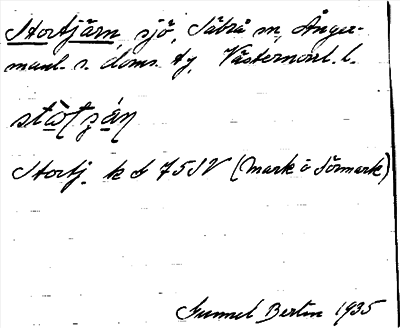 Stortjärn, sjö, Säbrå sn, Ånger-
manl. s. doms. tg, Västernorrl. l.
Stortj. k b 75 SV (Mark o Sörmark)
Gunnel Berlin 1935